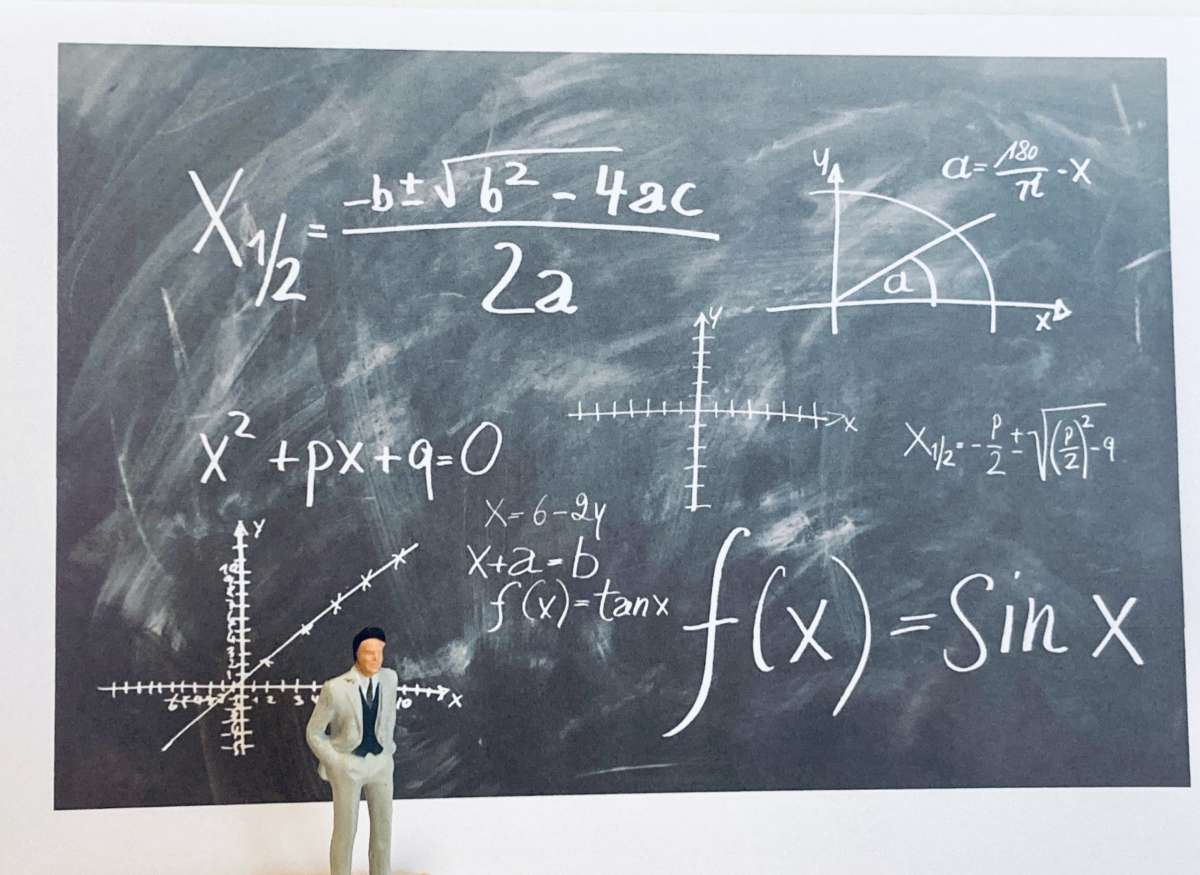 X1/2 = -b ± √b² - 4ac / 2a
y
a = 180/π - x
a
x
y
x
x² + px + q = 0
X1/2 = - p/2 ± √(p/2)² - q
x = 6 - 2y
x + a = b
f(x) = tan x
f(x) = Sin x
y
1 2 3 4 10 x